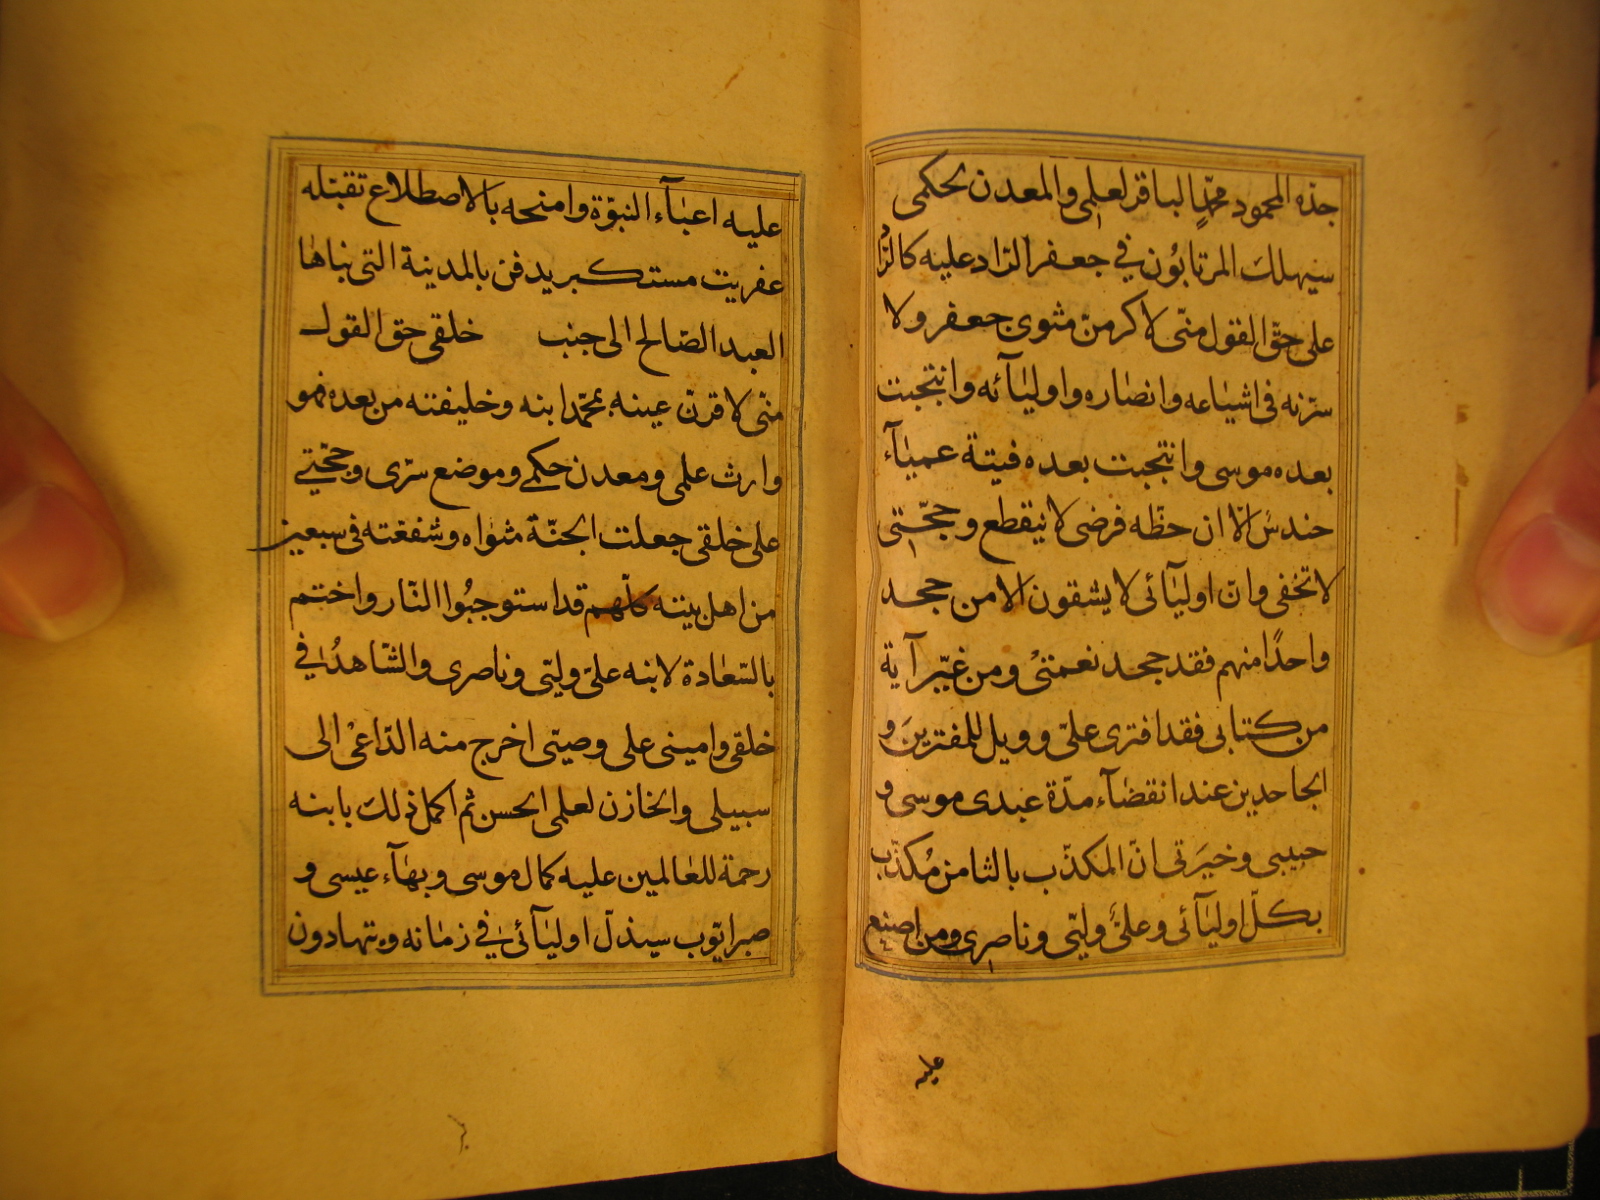 جدّه المحمود محمّدٍ الباقر لعلمى والمعدن لحكمى
سيهلك المرتابُون في جعفر الرّاد عليه كالرّاد
علىّ حقّ القول منّى لاكرمنّ مثوى جعفر ولا
سرّنه فى اشياعه وانصاره واوليآئه وانتجبت
بعده موسى وانتجبت بعده فيتة عميآء
حندسُ لانّ ان حظّه فرضى لا ينقطع وحجّتى
لا تخفى وانّ اوليآئى لا يشقون الا من جحد
واحدًا منهم فقد جحد نعمتى ومن غيّر آية
من كتابى فقد افترى علىّ وويل للمفترين و
الجاحدين عند انقضآء مدّة عبدى موسى و
حبيبى وخيرتى انّ المكذّب بالثامن مُكذّب
بكلّ اوليآئى وعلىٌّ وليّى وناصرى ومن اضع
عليه
عليه اعبآء النبوّة وامنحه بالاصطلاع تقبتله
عفريت مستكبر يدفن بالمدينة التى بناها
العبد الصّالح الى جنب خلقى حق القول
منّى لاقرنّ عينه بمحمّد ابنه وخليفته من بعده فهو
وارث علمى ومعدن حكمى وموضع سرّى وحجّتى
على خلقى جعلت الجنّة مثواه وشفعّته فى سبعين
من اهل بيته كلّهم قد استوجبُوا النّار واختم
بالسّعادة لابنه علىّ وليّى وناصرى والشّاهدُ فى
خلقى وامينى على وصيتى اخرج منه الدّاعى الى
سبيلى والخازن لعلمى الحسن ثم اكمل ذلك بابنه
رحمة للعالمين عليه كمال موسى وبهآء عيسى و
صبر ايّوب سيذلّ اوليآئى في زمانه ويتهادون